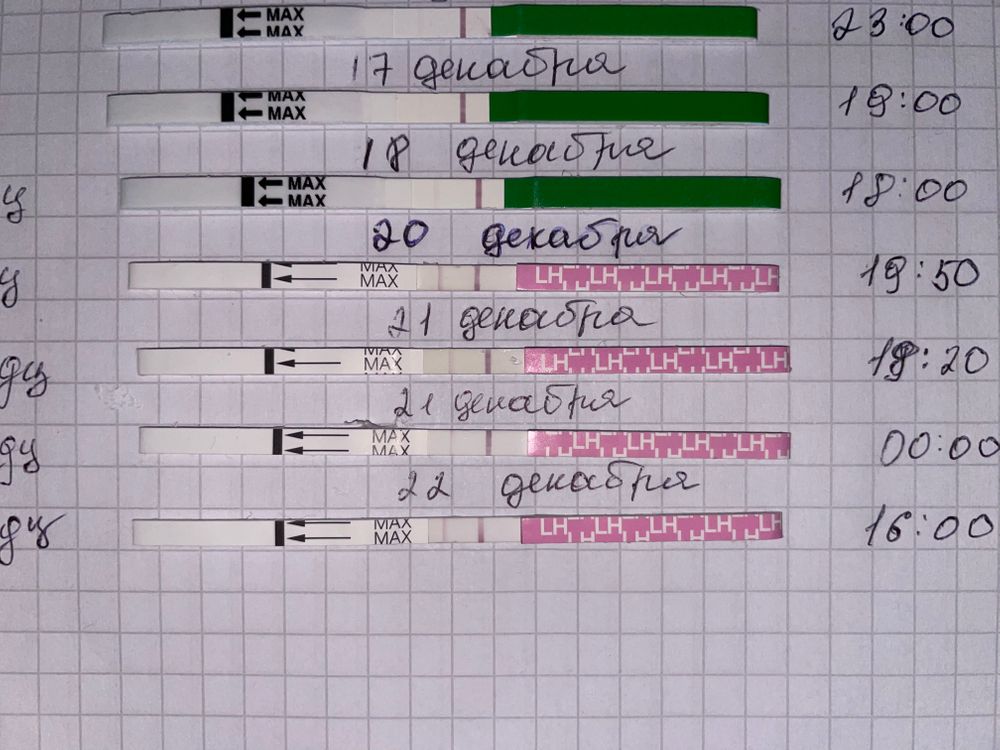 MAX
MAX
23:00
17 декабря
MAX
MAX
19:00
18 декабря
ц
MAX
MAX
18:00
20 декабря
ц
MAX
MAX
LH LH LH LH LH
19:50
21 декабря
дц
MAX
MAX
LH LH LH LH LH
19:20
21 декабря
дц
MAX
MAX
LH LH LH LH
00:00
22 декабря
дц
MAX
MAX
LH LH LH LH LH
16:00